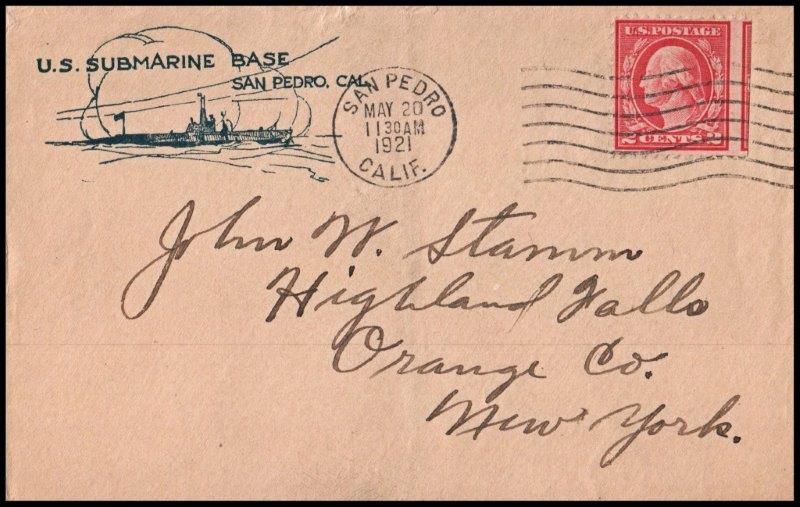 U.S. SUBMARINE BASE
SAN PEDRO, CAL.
SAN PEDRO
MAY 20
11 30 AM
1921
CALIF.
U.S. POSTAGE
2 CENTS 2
John W. Stamm
Highland Falls
Orange Co.
New York.